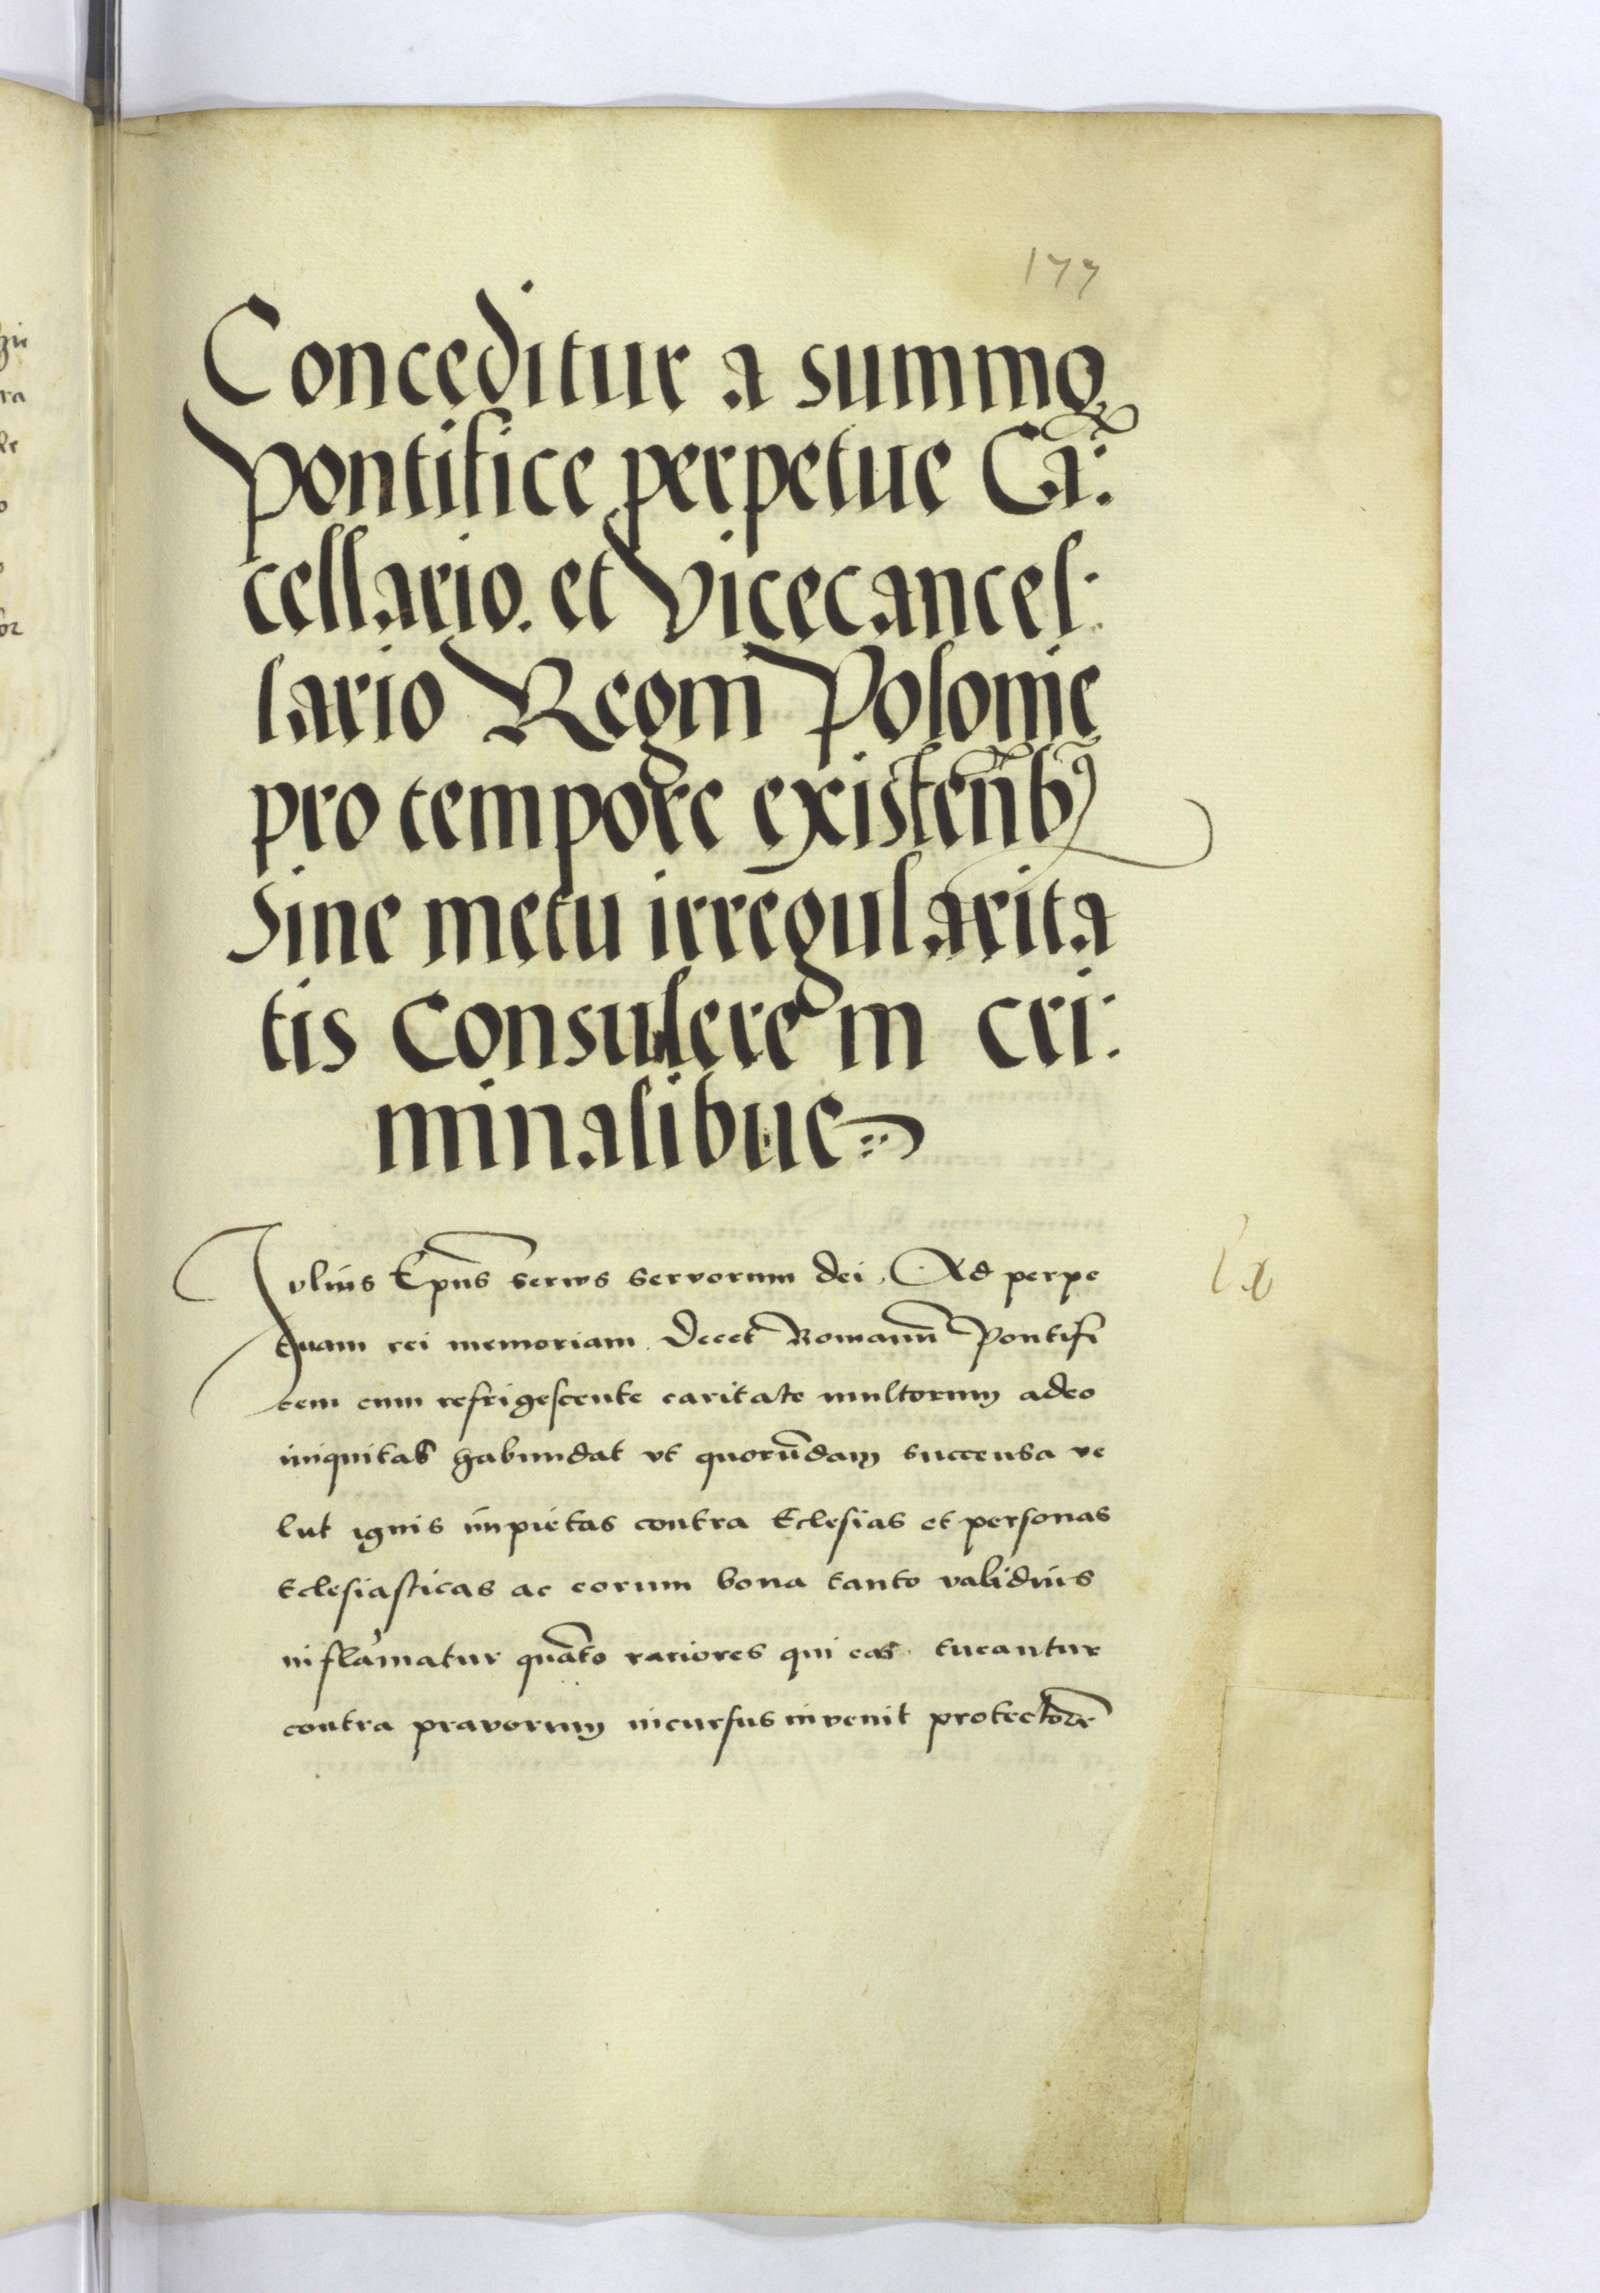 177
Conceditur a summo
Pontifice perpetue Cā:
cellario. et Vicecancel:
lario Regni Polonie
pro tempore existen̄bꝰ
Sine metu irregularita
tis Consulere in cri:
minalibus
Iulius Ep̄us servus servorum dei, Ad perpe
tuam rei memoriam. Decet Romanū Pontifi
cem cum refrigescente caritate multorum adeo
iniquitas habundat vt quorūdam succensa ve
lut ignis impietas contra Eclesias et personas
Eclesiasticas ac eorum bona tanto validius
inflāmatur quāto rariores qui eas tueantur
contra pravorum incursus invenit protectore